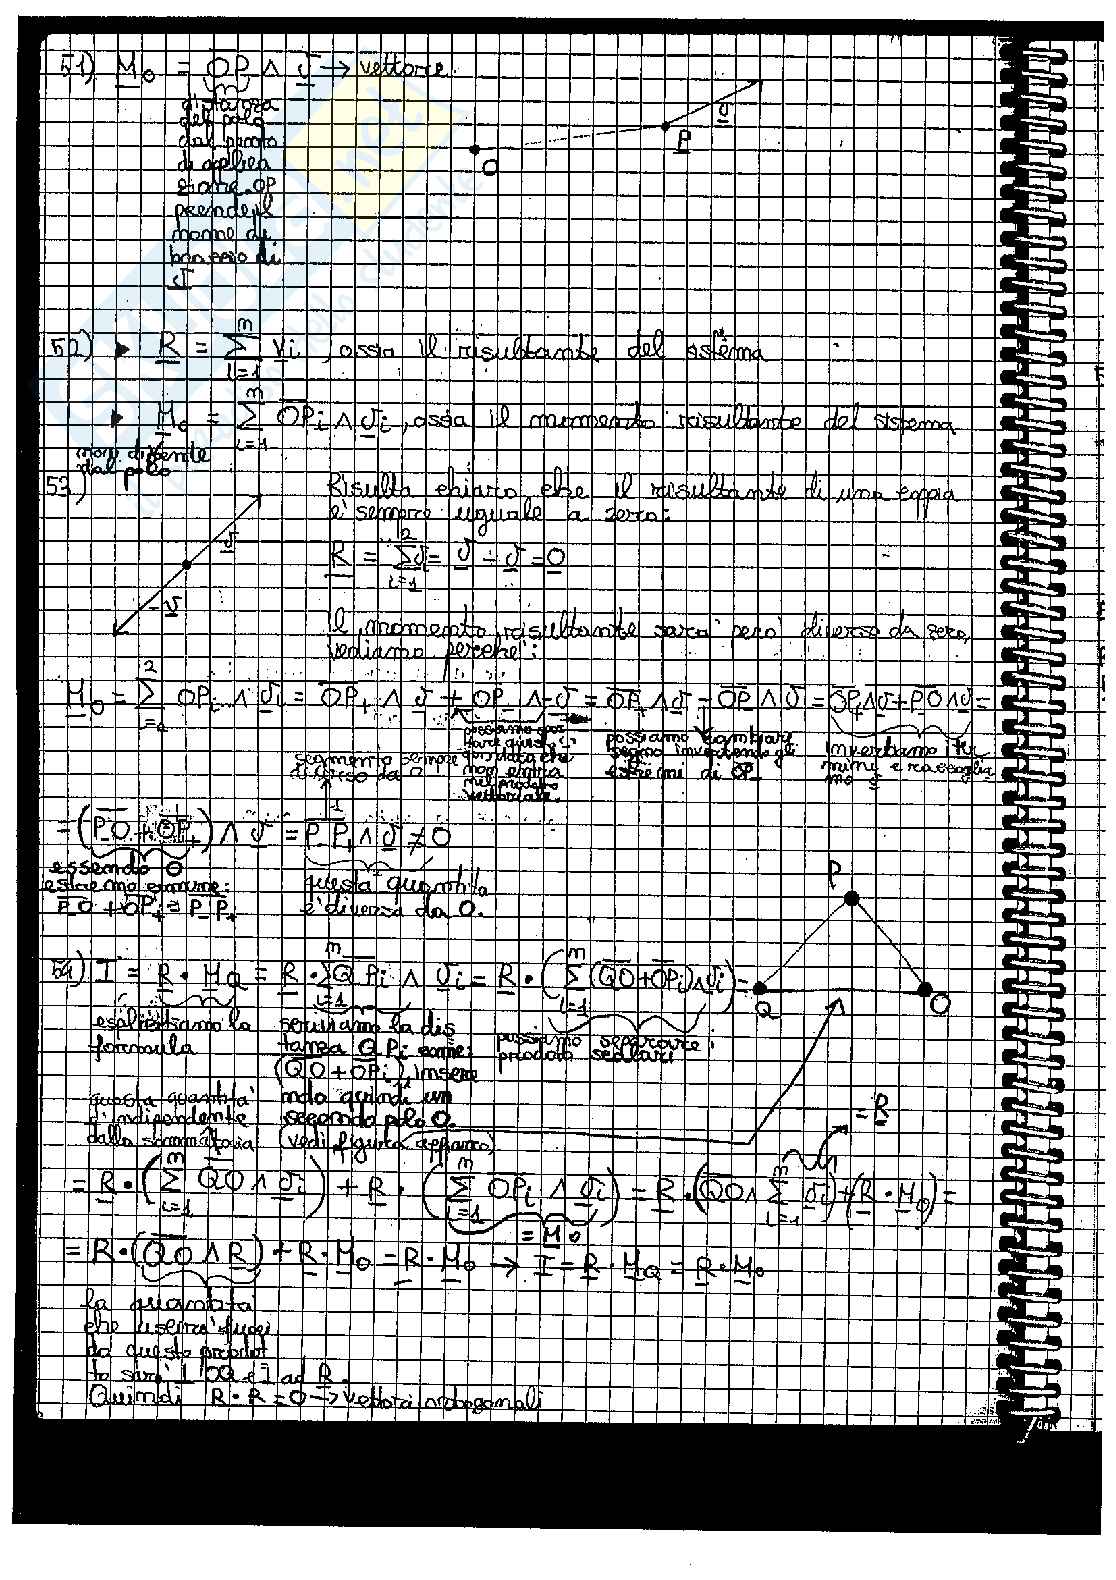 51) M_O = OP ∧ v → vettore
distanza
del polo
dal punto
di applica
zione. OP
prende il
nome di
braccio di
v
O P v
52) ▶ R = Σ_{i=1}^{n} v_i , ossia il risultante del sistema
▶ M_O = Σ_{i=1}^{n} OP_i ∧ v_i , ossia il momento risultante del sistema
non dipende
dal polo
53) Risulta chiaro che il risultante di una coppia
è sempre uguale a zero:
v
-v
R = Σ_{i=1}^{2} v = v - v = 0
Il momento risultante sarà però diverso da zero,
vediamo perché:
M_O = Σ^{2} OP_i ∧ v_i = OP_+ ∧ v + OP_- ∧ -v = OP_+ ∧ v - OP_- ∧ v = OP_+ ∧ v + P_-O ∧ v =
possiamo
non entra
nel prodotto
vettoriale.
possiamo cambiare
segno invertendo gli
estremi di OP_-
invertiamo i ter
mini e raccoglia
mo v
segmento sempre
diverso da 0
= (P_-O + OP_+) ∧ v = P_-P_+ ∧ v ≠ 0
essendo O
estremo comune:
P_-O + OP_+ = P_-P_+
questa quantità
è diversa da 0.
54) I = R · M_Q = R · Σ_{i=1}^{n} QP_i ∧ v_i = R · (Σ_{i=1}^{n} (QO + OP_i) ∧ v_i) =
P
Q O
esplicitiamo la
formula
scriviamo la dis
tanza QP_i come:
(QO + OP_i), inseren
ndo quindi un
secondo polo O.
(vedi figura appianco)
possiamo separare i
prodotti scalari
questa quantità
è indipendente
dalla sommatoria
= R
= R · (Σ_{i=1}^{n} QO ∧ v_i) + R · (Σ_{i=1}^{n} OP_i ∧ v_i) = R · (QO ∧ Σ_{i=1}^{n} v_i) + (R · M_O) =
= M_O
= R · (QO ∧ R) + R · M_O = R · M_O → I = R · M_Q = R · M_O
la quantità
che uscirà fuori
da questo prodot
to sarà ⊥ OQ e ⊥ ad R.
Quindi R · R = 0 → vettori ortogonali